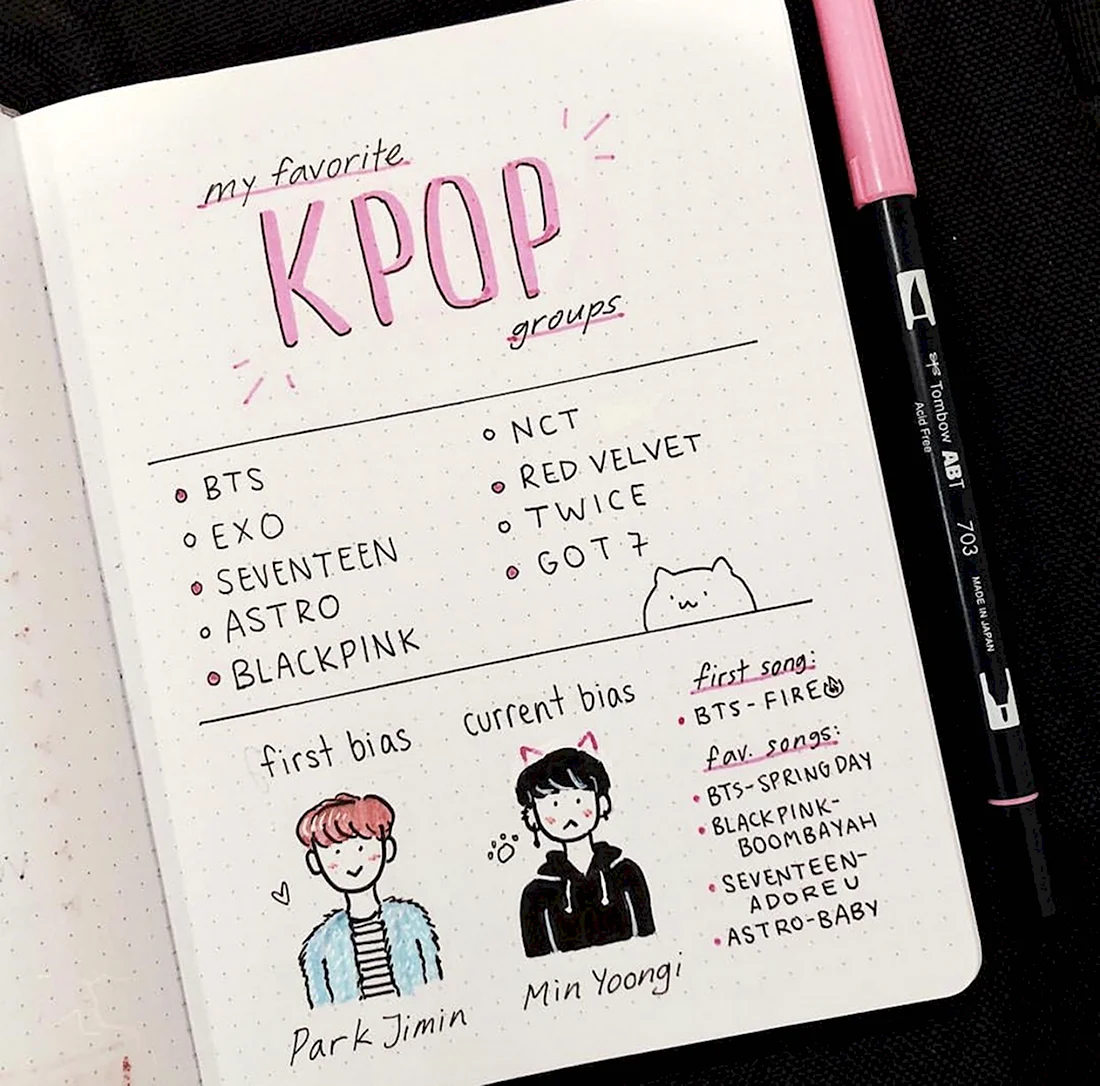 my favorite
KPOP
groups
BTS
EXO
SEVENTEEN
ASTRO
BLACKPINK
NCT
RED VELVET
TWICE
GOT 7
first bias
Park Jimin
current bias
Min Yoongi
first song:
BTS - FIRE
fav. songs:
BTS - SPRING DAY
BLACKPINK-
BOOMBAYAH
SEVENTEEN-
ADORE U
ASTRO-BABY
Tombow ABT
Acid Free
703
MADE IN JAPAN